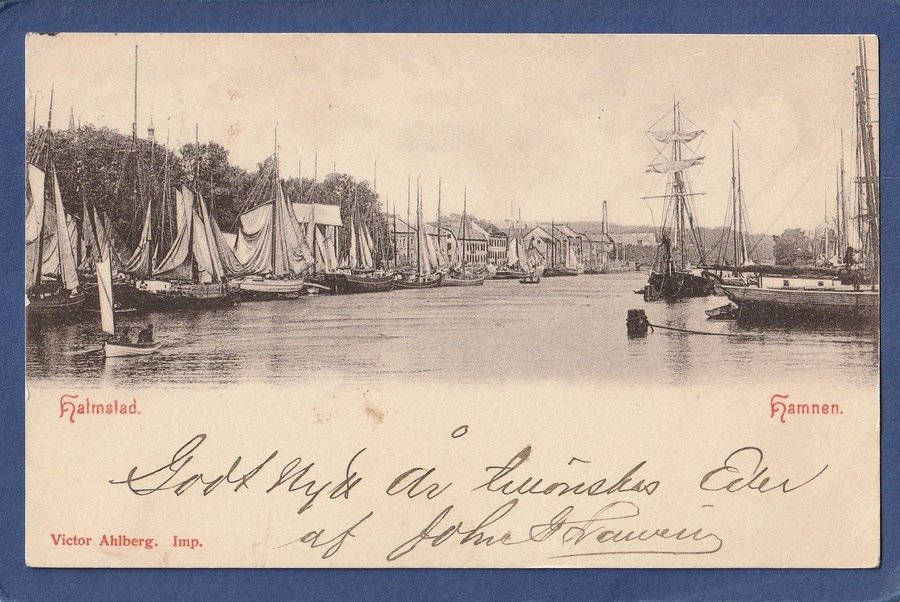 Halmstad.
Hamnen.
Godt Nytt År tillönskas Eder
af John
Victor Ahlberg. Imp.